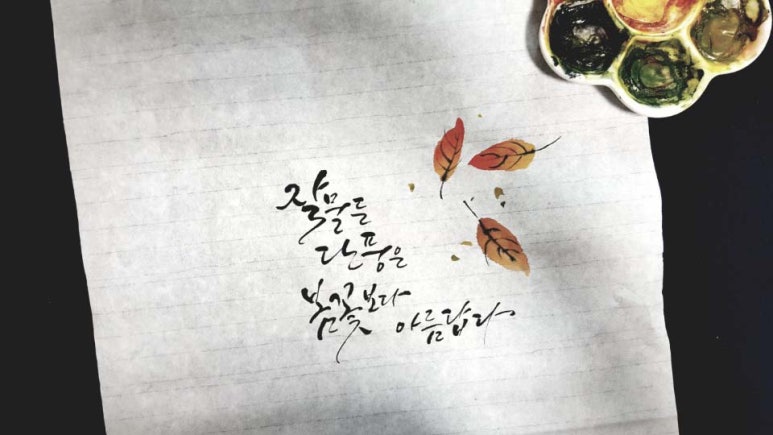 잘 물든
단풍은
봄꽃보다
아름답다